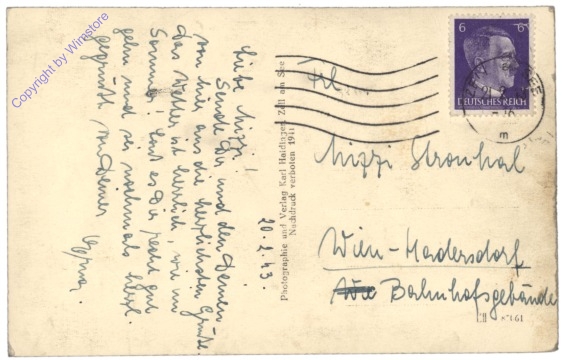 Copyright by Wimstore
20. 2. 43.
Liebe Mizzi!
Sende Dir und den Deinen
von hier aus die herzlichsten Grüße.
Das Wetter ist herrlich, wie im
Sommer. Lass es Dir recht gut
gehn und sei nochmals herzl.
gegrüßt von Deiner
Erna.
Photographie und Verlag Karl Haidinger, Zell am See
Nachdruck verboten 1941
6 6
DEUTSCHES REICH
m
Frl.
Mizzi Stronhal
Wien-Hadersdorf
Bahnhofsgebäude